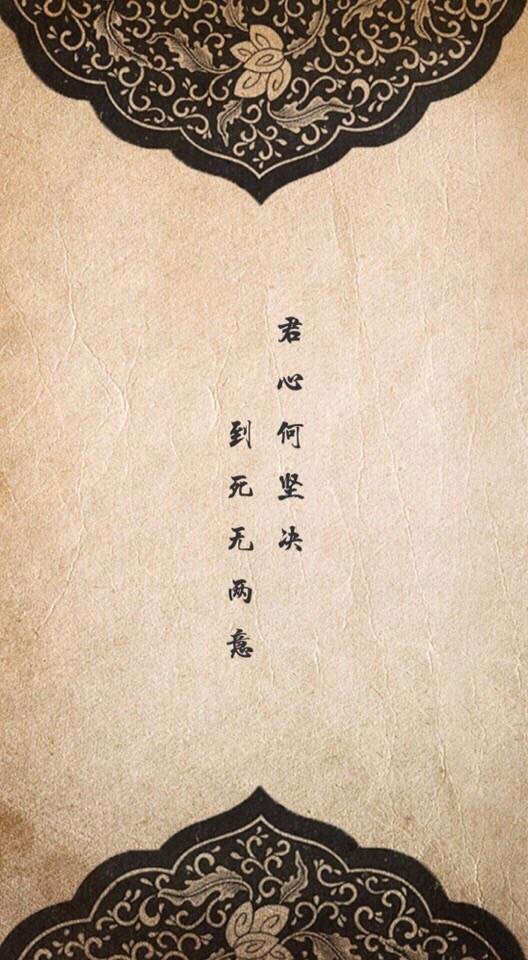 君心何坚决
到死无两意